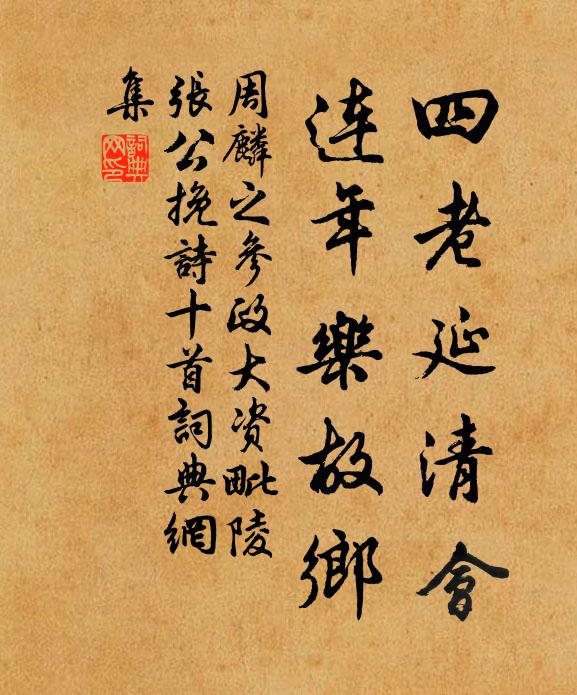 四老延清會
连年樂故鄉
周麟之參政大资毗陵
張公挽詩十首詞典網
集
詞典网印